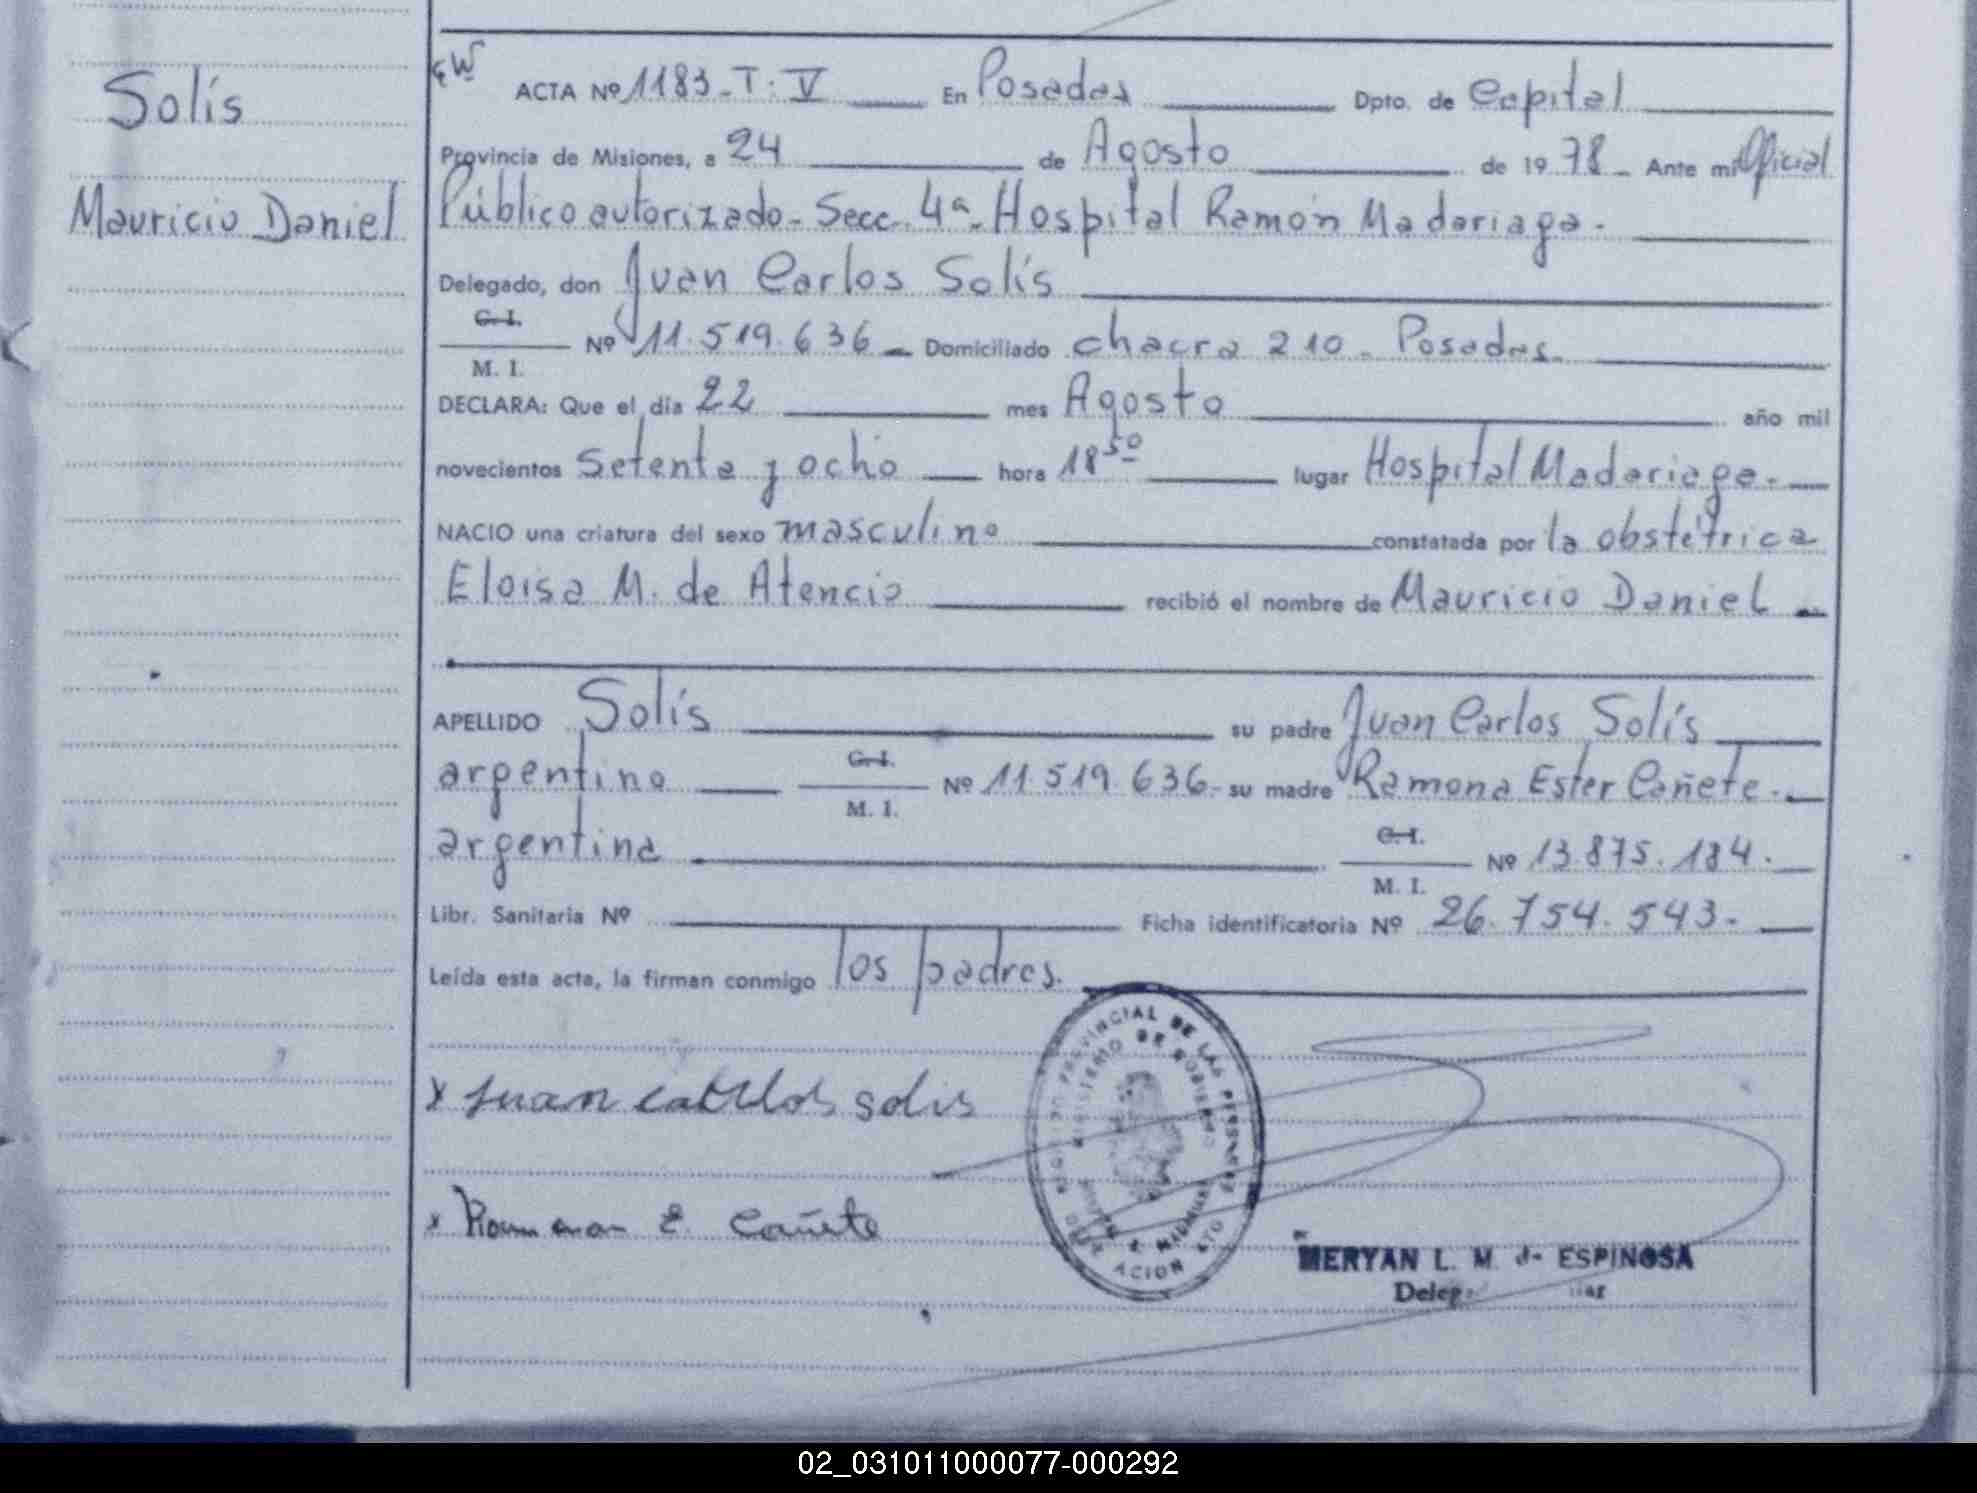 Solís
Mauricio Daniel
ACTA Nº 1183-T: V En Posadas Dpto. de Capital
Provincia de Misiones, a 24 de Agosto de 1978 - Ante mi Oficial
Público autorizado - Secc. 4ª - Hospital Ramón Madariaga -
Delegado, don Juan Carlos Solís
C. I.
M. I. Nº 11.519.636 - Domiciliado chacra 210 - Posadas -
DECLARA: Que el día 22 mes Agosto año mil
novecientos setenta y ocho hora 18 50 lugar Hospital Madariaga. -
NACIO una criatura del sexo masculino constatada por la obstétrica
Eloisa M. de Atencio recibió el nombre de Mauricio Daniel -
APELLIDO Solís su padre Juan Carlos Solís
argentino C. I. M. I. Nº 11.519.636 - su madre Ramona Ester Cañete. -
argentina C. I. M. I. Nº 13.875.184. -
Libr. Sanitaria Nº Ficha identificatoria Nº 26.754.543 -
Leída esta acta, la firman conmigo los padres.
x Juan Carlos Solis
x Ramona E. Cañete
PROVINCIAL DE LAS PERSONAS
MINISTERIO DE GOBIERNO
MERYAN L. M. ESPINOSA
02_031011000077-000292